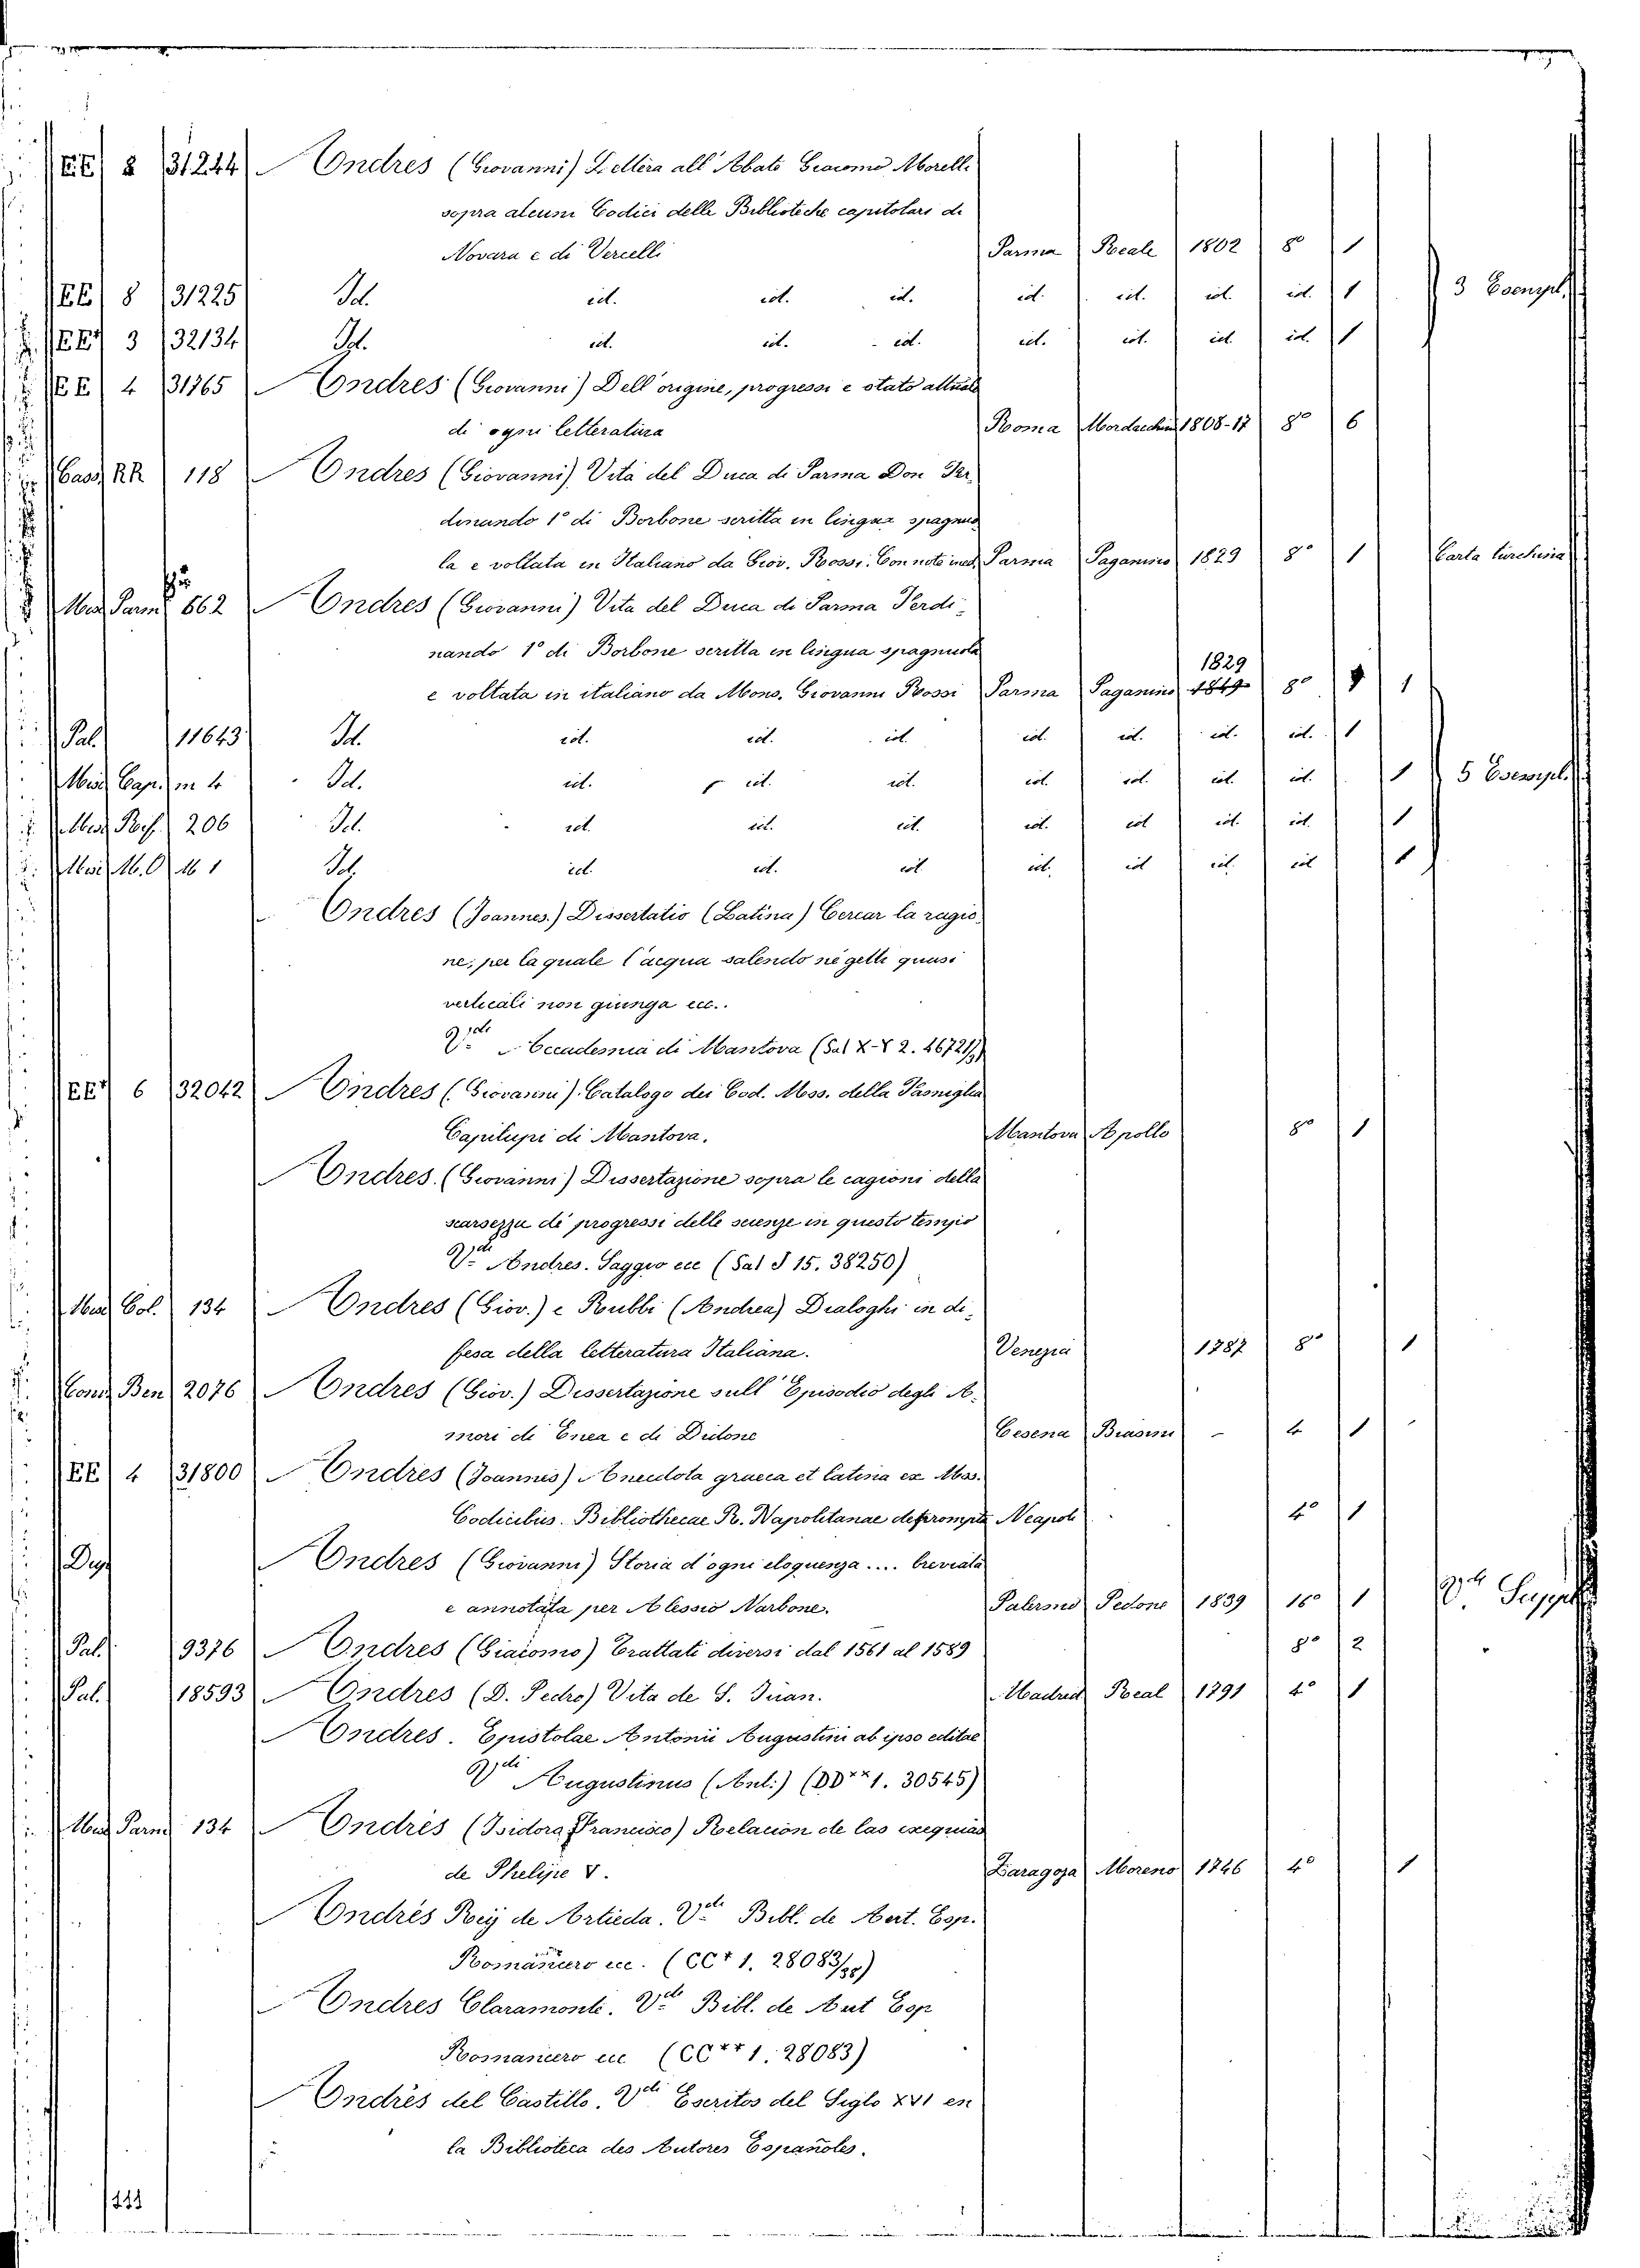 EE 8 31244 Andres (Giovanni) Lettera all' Abate Giacomo Morelli
sopra alcuni Codici delle Biblioteche capitolari di
Novara e di Vercelli Parma Reale 1802 8º 1
EE 8 31225 Id. id. id. id. id. id. id. id. 1 3 Esempl.
EE† 3 32134 Id. id. id. id. id. id. id. id. 1
EE 4 31765 Andres (Giovanni) Dell'origine, progressi e stato attuale
di ogni letteratura Roma Mordacchini 1808-17 8º 6
Cass. RR 118 Andres (Giovanni) Vita del Duca di Parma Don Fer-
dinando 1º di Borbone scritta in lingua spagnuo
la e voltata in Italiano da Giov. Rossi. Con note ined. Parma Paganino 1829 8º 1 Carta turchina
Misc. Parm. 662 Andres (Giovanni) Vita del Duca di Parma Ferdi-
nando 1º di Borbone scritta in lingua spagnuola
1829
e voltata in italiano da Mons. Giovanni Rossi Parma Paganino 1849 8º 1 1
Pal. 11643 Id. id. id. id. id. id. id. id. 1
Misc. Cap. m 4 Id. id. id. id. id. id. id. id. 1 5 Esempl.
Misc. 206 Id. id. id. id. id. id. id. id. 1
Misc. M.O. M 1 Id. id. id. id. id. id. id. id. 1
Andres (Joannes.) Dissertatio (Latina) Cercar la ragio-
ne, per la quale l'acqua salendo ne getti quasi
verticali non giunga ecc..
Vdi Accademia di Mantova (Sal X-Y 2. 46721/)
EE† 6 32042 Andres (Giovanni) Catalogo dei Cod. Mss. della Famiglia
Capilupi di Mantova. Mantova Apollo 8º 1
Andres (Giovanni) Dissertazione sopra le cagioni della
scarsezza di progressi delle scienze in questo tempio
Vdi Andres. Saggio ecc (Sal J 15. 38250)
Misc. Col. 134 Andres (Giov.) e Rubbi (Andrea) Dialoghi in di-
fesa della letteratura Italiana. Venezia 1787 8º 1
Conv. Ben. 2076 Andres (Giov.) Dissertazione sull' Episodio degli A-
mori di Enea e di Didone Cesena Biasini - 4 1
EE 4 31800 Andres (Joannis) Anecdota graeca et latina ex Mss.
Codicibus. Bibliothecae R. Napolitanae deprompta Neapoli 4º 1
Dep Andres (Giovanni) Storia d'ogni eloquenza .... breviata
e annotata per Alessio Narbone. Palermo Pedone 1839 16º 1 Vdi Suppl
Pal. 9376 Andres (Giacomo) Trattati diversi dal 1561 al 1589 8º 2
Pal. 18593 Andres (D. Pedro) Vita de S. Juan. Madrid Real 1791 4º 1
Andres. Epistolae Antonii Augustini ab ipso editae
Vdi Augustinus (Ant.) (DD** 1. 30545)
Misc. Parm. 134 Andrés (Isidora Francisco) Relacion de las exequias
de Phelipe V. Zaragoza Moreno 1746 4º 1
Andrés Rey de Artieda. Vdi Bibl. de Aut. Esp.
Romancero ecc. (CC† 1. 28083/)
Andres Claramonte. Vdi Bibl. de Aut Esp
Romancero ecc (CC†† 1. 28083)
Andrés del Castillo. Vdi Escritos del Siglo XVI en
la Biblioteca des Autores Españoles.